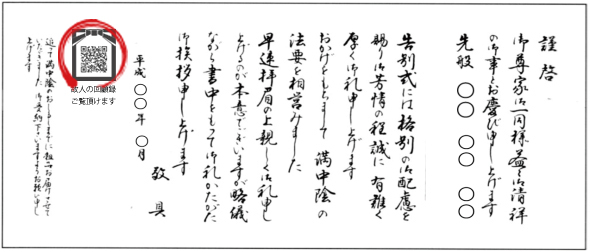 謹啓
御尊家御一同様益々御清祥
の御事とお慶び申し上げます
先般 〇〇 〇〇 〇〇
告別式には格別の御配慮を
賜り御芳情の程誠に有難く
厚く御礼申し上げます
おかげをもちまして 満中陰の
法要を相営みました
早速拝眉の上親しく御礼申し
上げるのが本意でございますが略儀
ながら書中をもって御礼かたがた
御挨拶申し上げます
敬具
平成 〇〇年 〇月
故人の回顧録
ご覧頂けます
追って満中陰のおしるしまでに粗品お届けさせて
いただきました 御受納下さいますようお願い申し
上げます